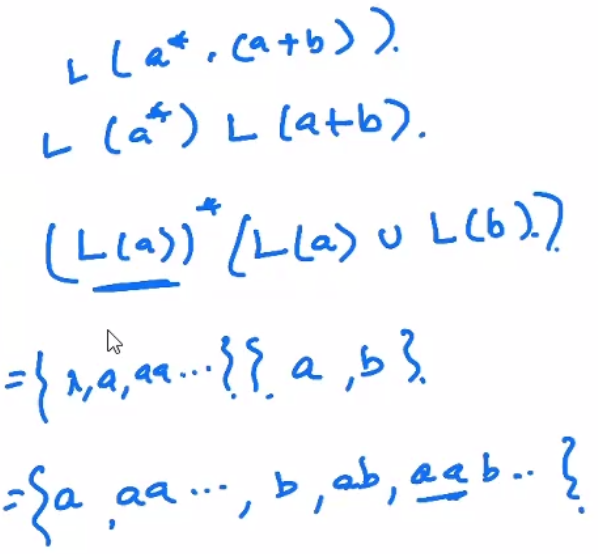 L (a*. (a+b)).
L (a*) L (a+b).
(L(a))* (L(a) ∪ L(b).)
={λ, a, aa...}{a, b}.
={a, aa..., b, ab, aab..}.